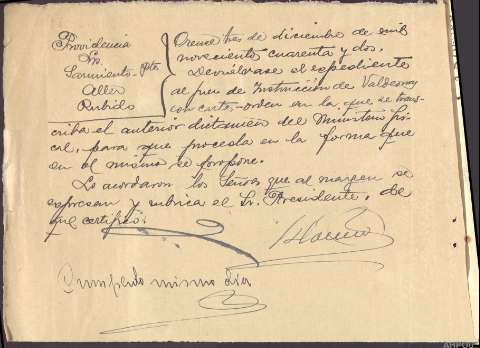 Providencia
Sres.
Sarmiento-Pte
Aller
Rubido
Orense tres de diciembre de mil
novecientos cuarenta y dos.
Devuélvase el expediente
al juez de Instrucción de Valdeorras
con carta-orden en la que se trans-
criba el anterior dictamen del Ministerio Fis-
cal, para que proceda en la forma que
en el mismo se propone.
Lo acordaron los Señores que al margen se
expresan y rubrica el Sr. Presidente, de
que certifico:
Cumplido mismo día
AHPOU